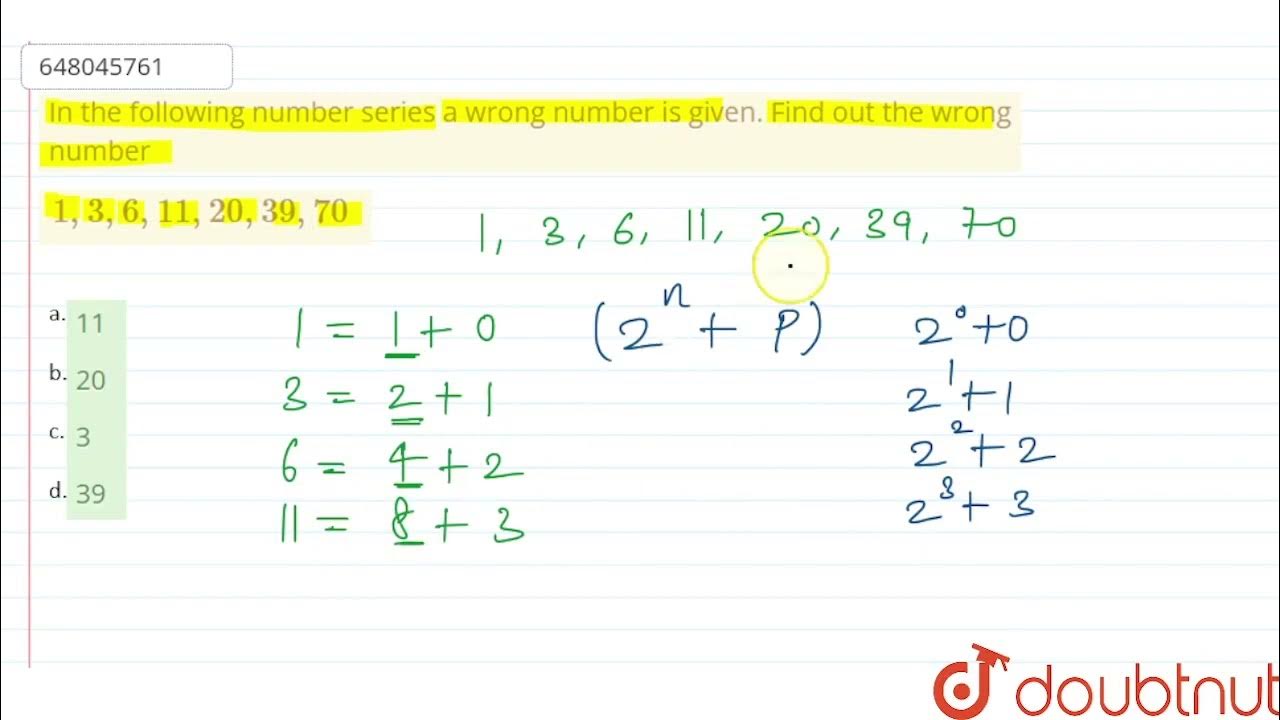 648045761
In the following number series a wrong number is given. Find out the wrong
number
1, 3, 6, 11, 20, 39, 70
1, 3, 6, 11, 20, 39, 70
a. 11
b. 20
c. 3
d. 39
1 = 1 + 0
3 = 2 + 1
6 = 4 + 2
11 = 8 + 3
(2^n + P)
2^0 + 0
2^1 + 1
2^2 + 2
2^3 + 3
doubtnut